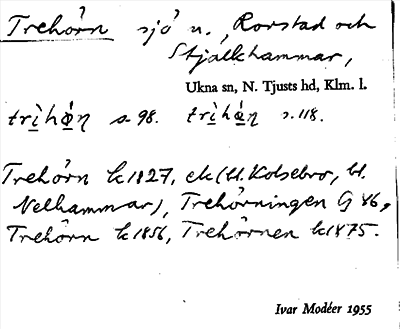 Trehörn sjö n., Rorstad och
Stjälkhammar,
Ukna sn, N. Tjusts hd, Klm. l.
trìhǿn s. 98. trìhǿn s. 118.
Trehörn k 1827, ek (bl. Kolsebro, bl.
Nelhammar), Trehörningen G 86,
Trehörn k 1856, Trehörnen k 1875.
Ivar Modéer 1955